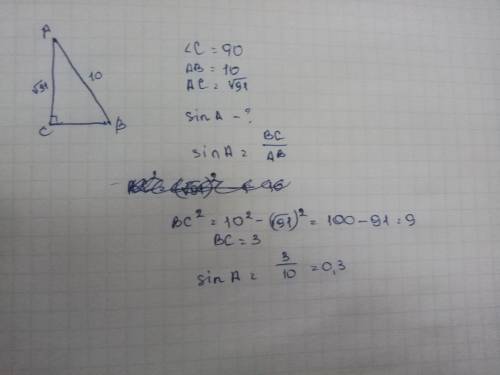 A
√91
10
C
B
∠C = 90
AB = 10
AC = √91
sin A - ?
sin A = BC/AB
BC² = 10² - (√91)² = 100 - 91 = 9
BC = 3
sin A = 3/10 = 0,3